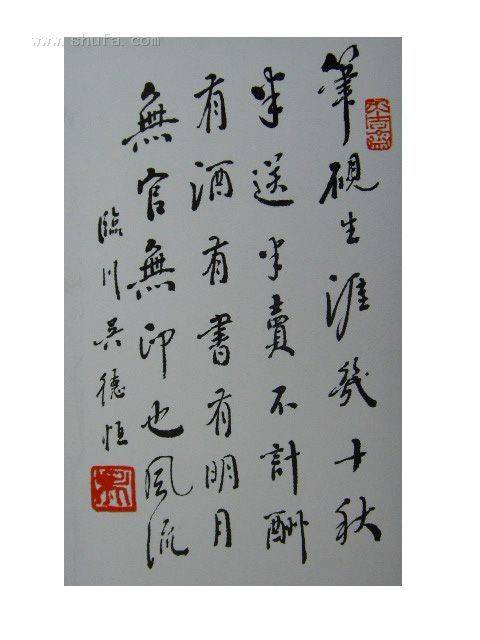 www.shufa.com
筆硯生涯幾十秋
半送半賣不計酬
有酒有書有明月
無官無印也風流
臨川吳德恒